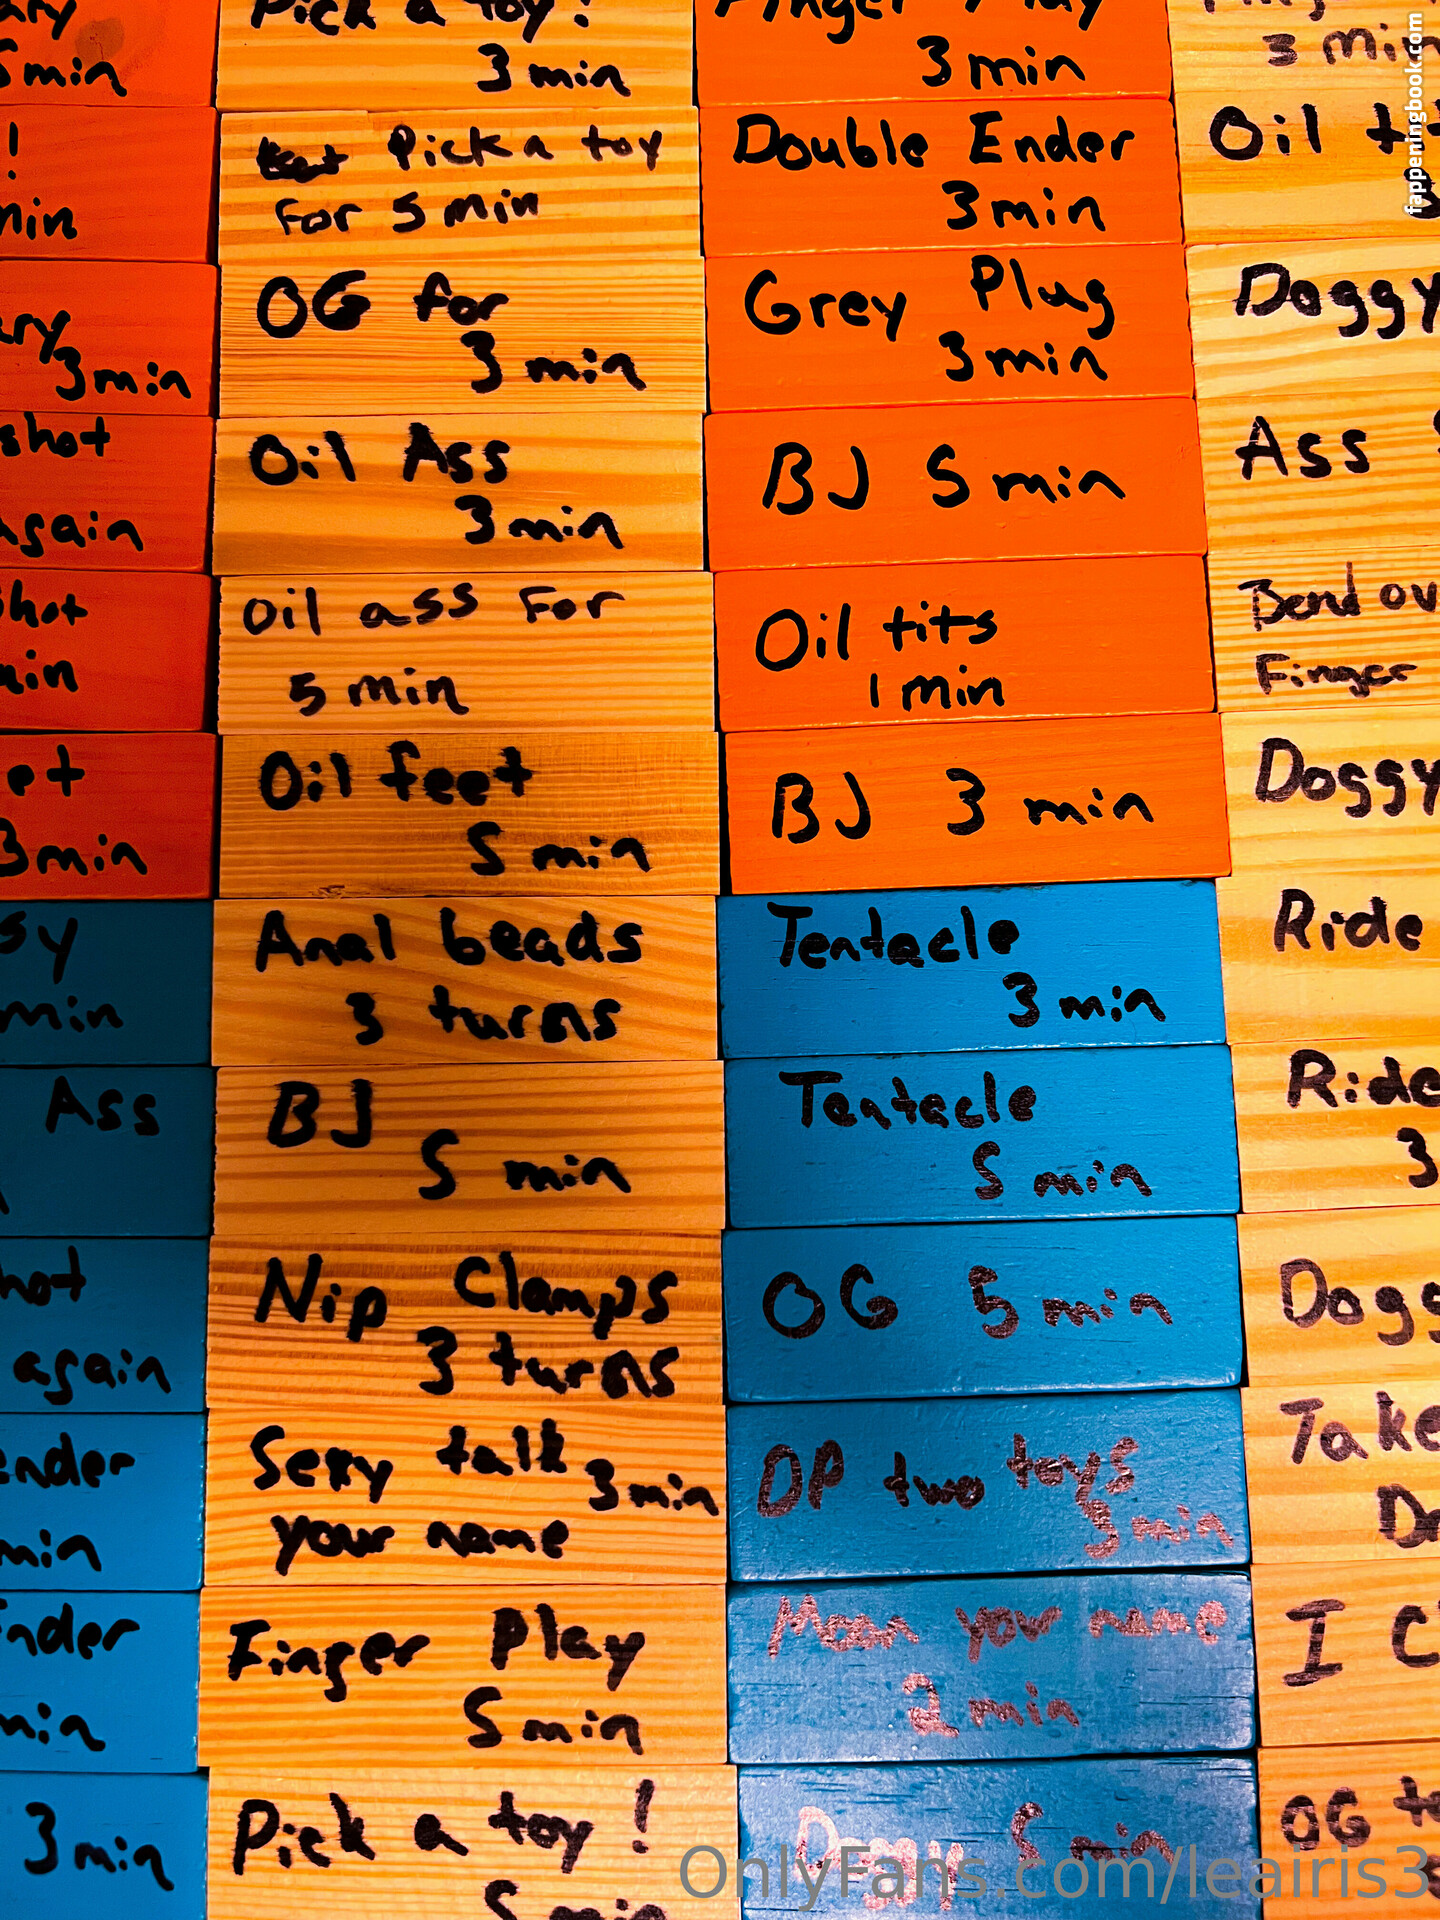 ary
5 min
!
min
ary
3 min
shot
again
shot
ain
et
3 min
sy
min
Ass
hot
again
ender
min
ender
min
3 min
Pick a toy!
3 min
Pick a toy
for 5 min
OG for
3 min
Oil Ass
3 min
Oil ass For
5 min
Oil feet
5 min
Anal beads
3 turns
BJ
5 min
Nip Clamps
3 turns
Sexy talk 3 min
your name
Finger Play
5 min
Pick a toy!
5 min
Finger Play
3 min
Double Ender
3 min
Grey Plug
3 min
BJ 5 min
Oil tits
1 min
BJ 3 min
Tentacle
3 min
Tentacle
5 min
OG 5 min
DP two toys
3 min
Moan your name
2 min
5 min
3 min
Oil tit
Doggy
Ass
Bend ov
Finger
Doggy
Ride
Ride
3
Dogg
Take
I C
OG to
fappeningbook.com
OnlyFans.com/leairis3